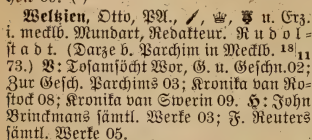 Weltzien, Otto, PA., u. Erz.
i. mecklb. Mundart, Redakteur. Rudol=
stadt. (Darze b. Parchim in Mecklb. 18|11
73.) V: Tosamsöcht Wor, G. u. Geschn.02;
Zur Gesch. Parchims 03; Kronika van Ro=
stock 08; Kronika van Swerin 09. H: John
Brinckmans sämtl. Werke 03; F. Reuters
sämtl. Werke 05.